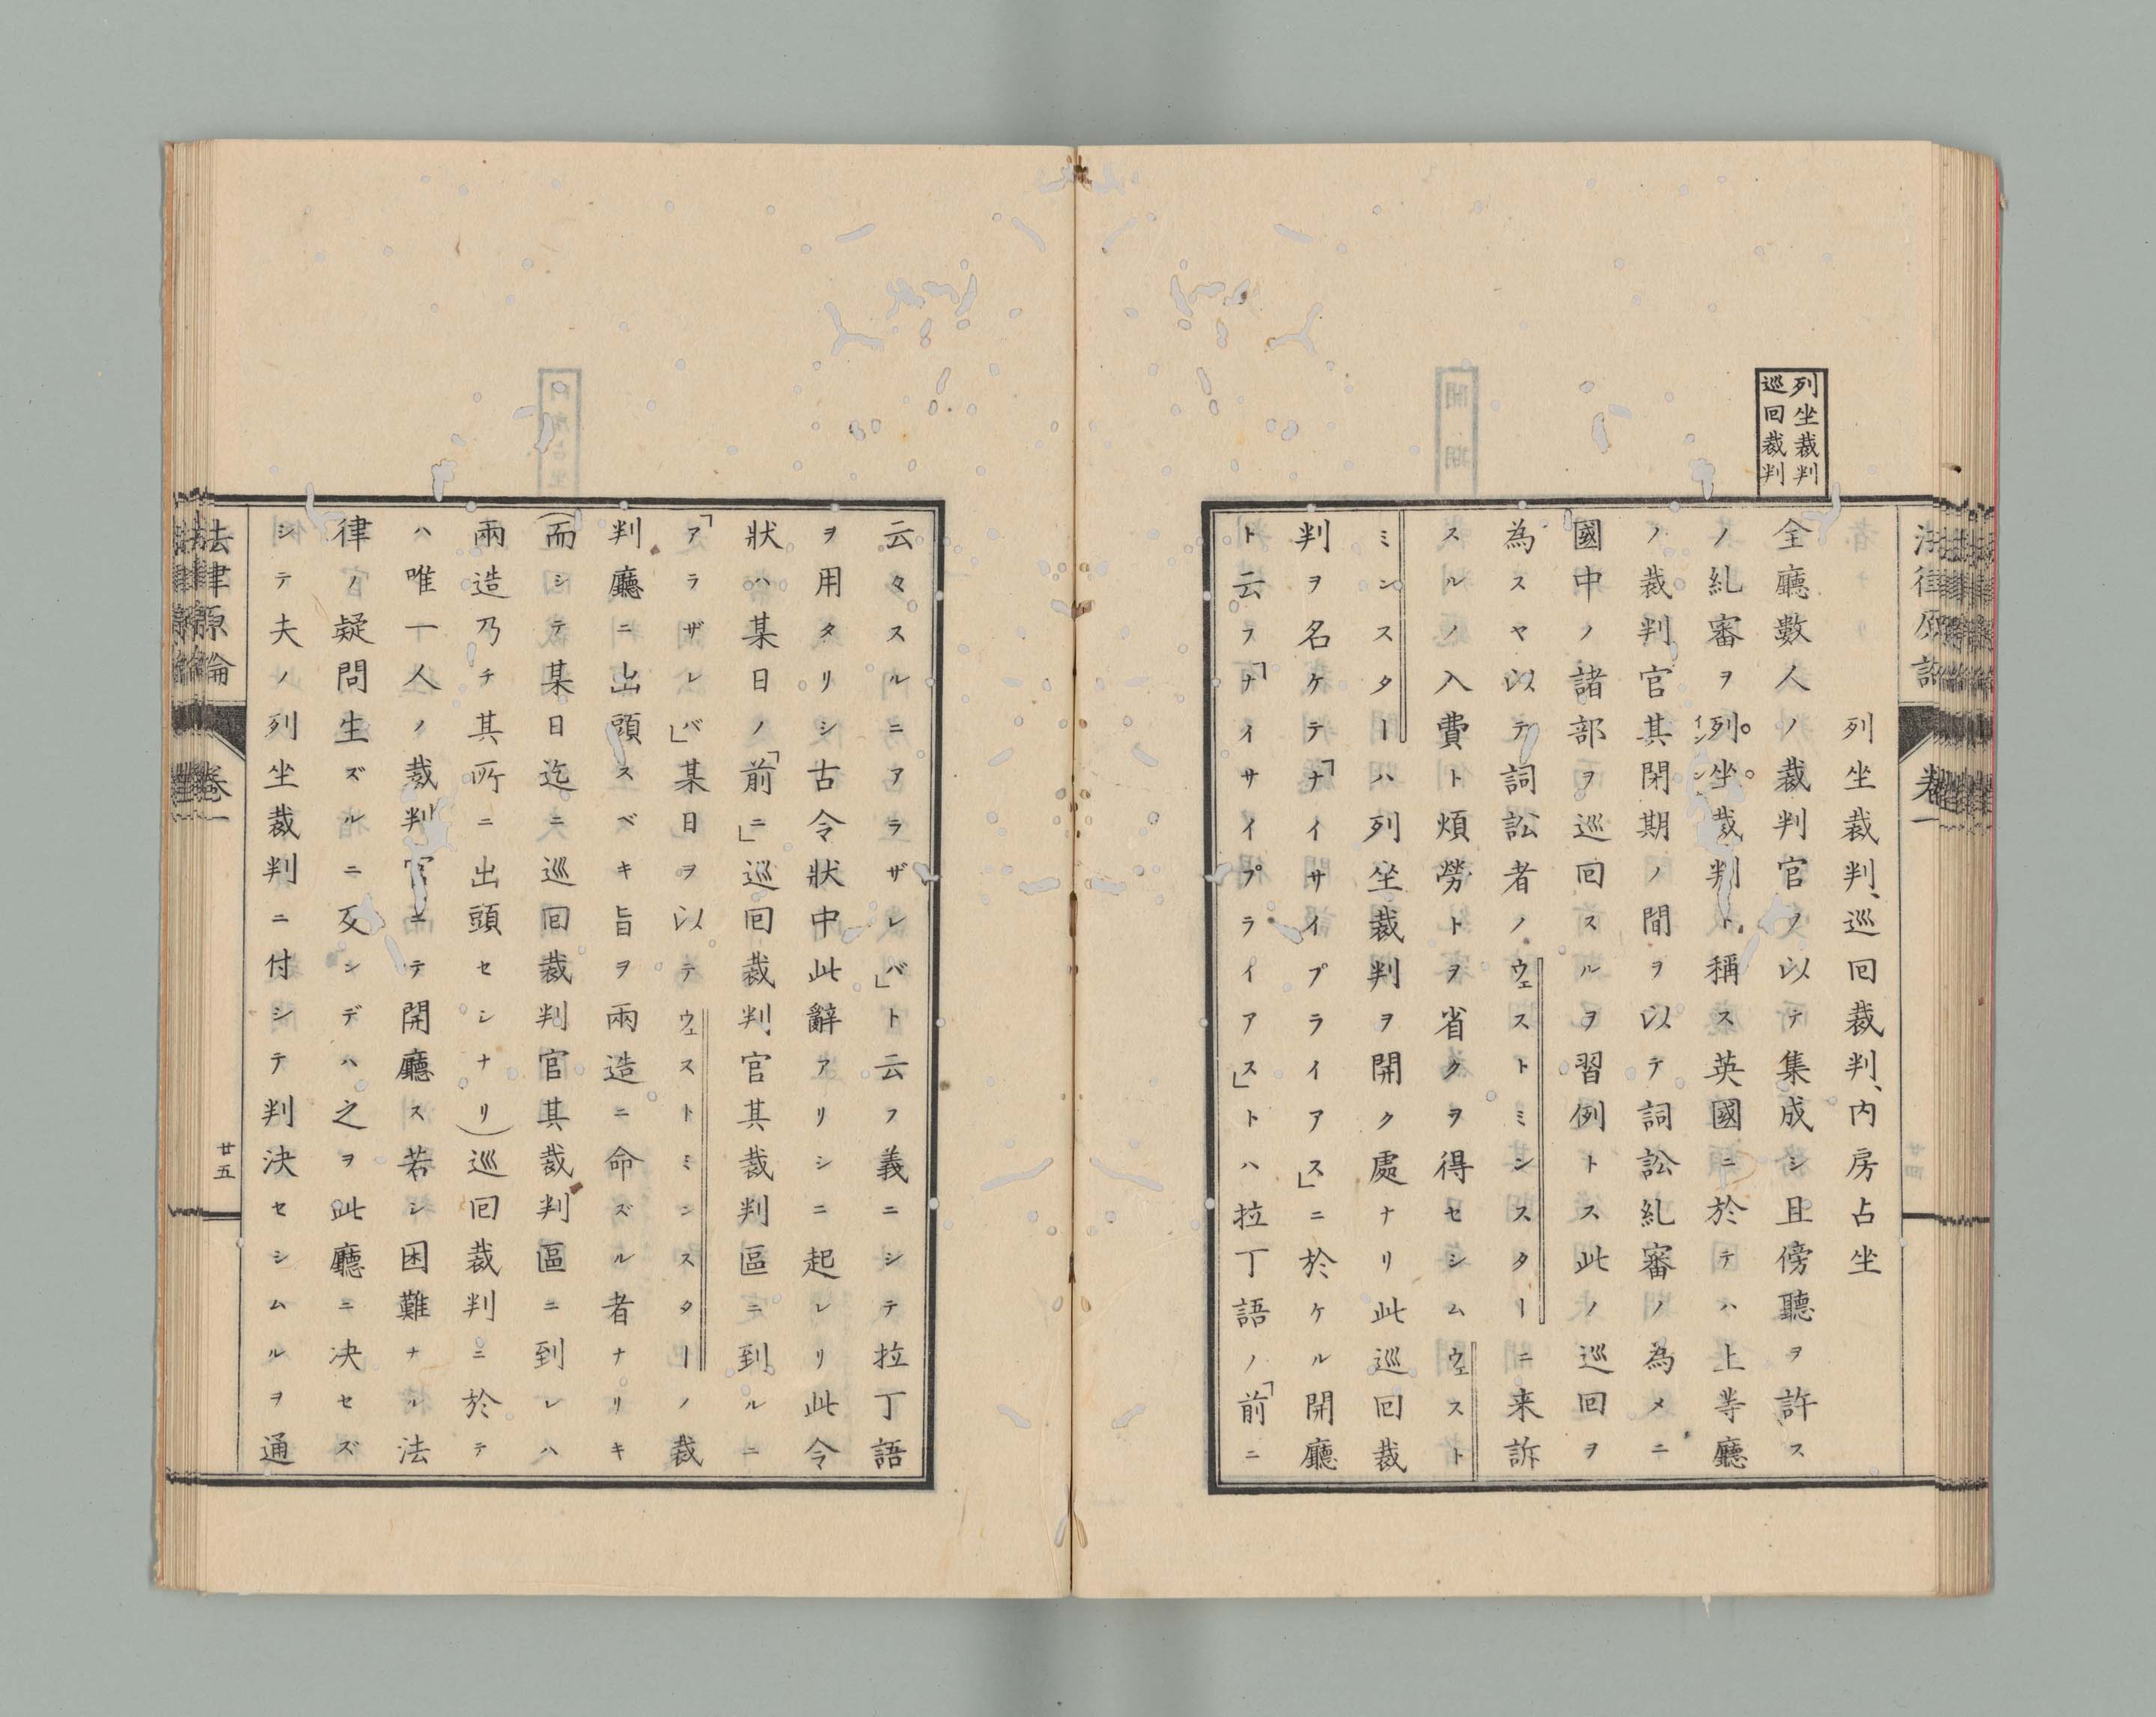 列坐裁判
巡回裁判
法律原論
卷一
列坐裁判、巡回裁判、内房占坐
全廳數人ノ裁判官ヲ以テ集成シ且傍聽ヲ許ス
ノ糺審ヲ列坐裁判ト稱ス英國ニ於テハ上等廳
ノ裁判官其閉期ノ間ヲ以テ詞訟糺審ノ為メニ
國中ノ諸部ヲ巡回スルヲ習例トス此ノ巡回ヲ
為スヤ以テ詞訟者ノウェストミンスターニ来訴
スルノ入費ト煩勞トヲ省クヲ得セシムウェスト
ミンスターハ列坐裁判ヲ開ク處ナリ此巡回裁
判ヲ名ケテ「ナイサイプライアス」ニ於ケル開廳
ト云フ「ナイサイプライアス」トハ拉丁語ノ「前ニ
云々スルニアラザレバ」ト云フ義ニシテ拉丁語
ヲ用タリシ古令狀中此辭アリシニ起レリ此令
狀ハ某日ノ「前ニ」巡回裁判官其裁判區ニ到ルニ
「アラザレバ」某日ヲ以テウェストミンスターノ裁
判廳ニ出頭スベキ旨ヲ兩造ニ命ズル者ナリキ
(而シテ某日迄ニ巡回裁判官其裁判區ニ到レハ
兩造乃チ其所ニ出頭セシナリ)巡回裁判ニ於テ
ハ唯一人ノ裁判官ニテ開廳ス若シ困難ナル法
律ノ疑問生ズルニ及ンデハ之ヲ此廳ニ决セズ
シテ夫ノ列坐裁判ニ付シテ判決セシムルヲ通
法律原論
卷一
廿五